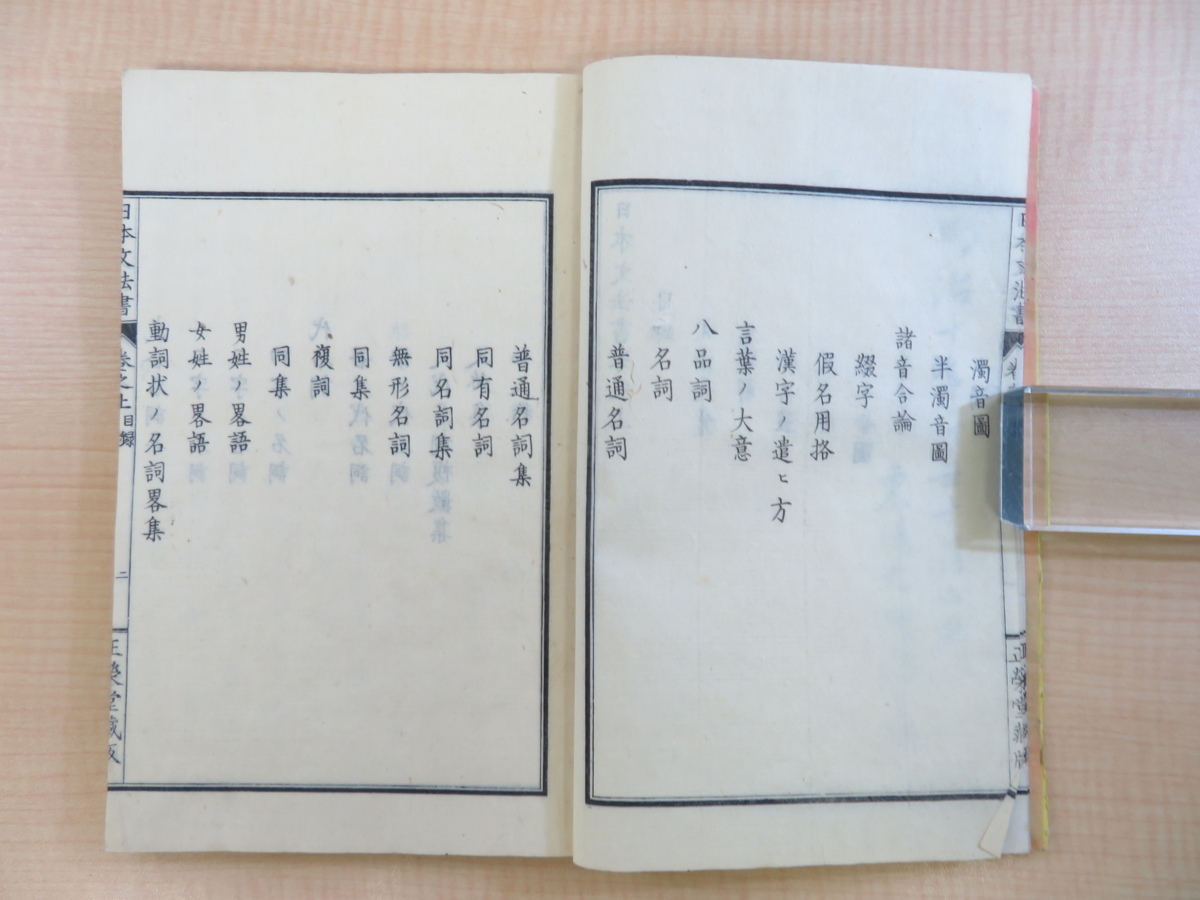 濁音圖
半濁音圖
諸音合論
綴字
假名用挌
漢字ノ遣ヒ方
言葉ノ大意
八品詞
名詞
普通名詞
正榮堂藏版
普通名詞集
同有名詞
同名詞集
無形名詞
同集
複詞
同集
男姓ノ畧語
女姓ノ畧語
動詞状ノ名詞畧集
日本文法書
卷之上目録
二
正榮堂藏版